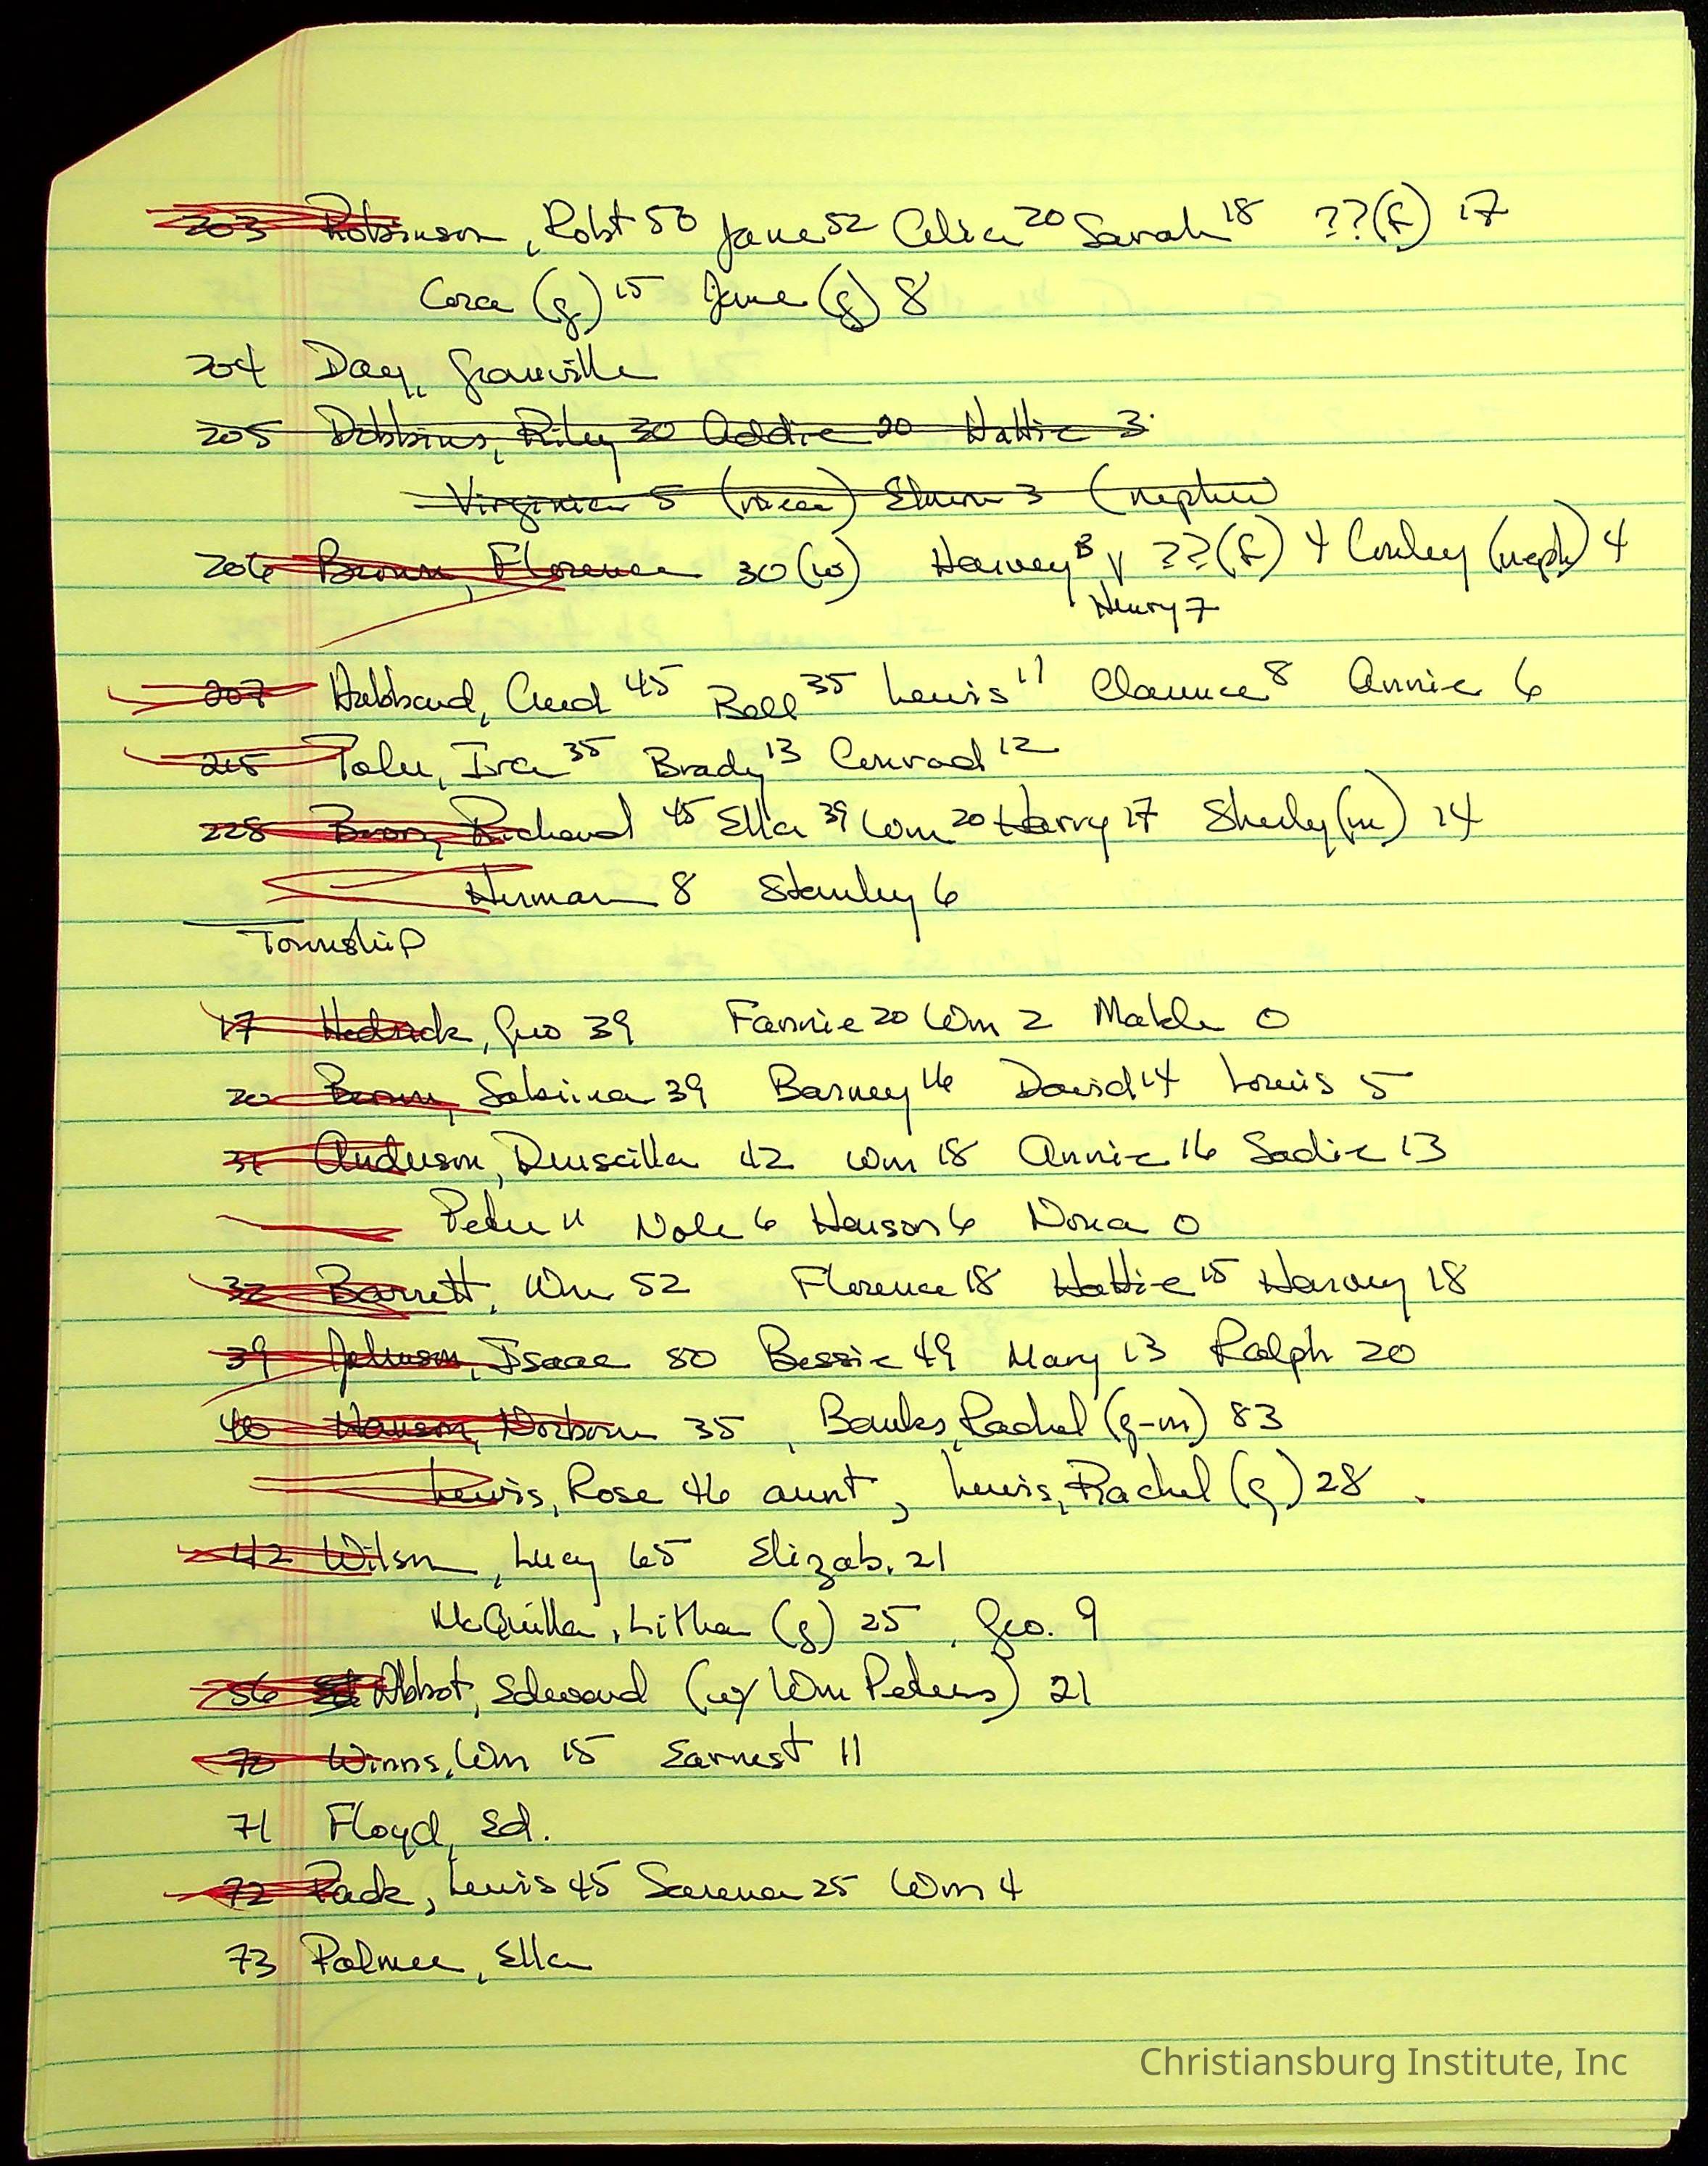 203 Robinson, Robt 50 Jane 52 Celia 20 Sarah 18 ??(f) 17
Cora (g) 15 Jane (g) 8
204 Day, Granville
205 Dobbins, Riley 30 Addie 20 Hattie 3
Virginia 5 (niece) Elmon 3 (nephew)
206 Brown, Florence 30 (w) Harvey 8 ??(f) 4 Conley (neph) 4
Henry 7
207 Hubbard, 45 Bell 35 Lewis 11 Clarence 8 Annie 6
215 Ira 35 Brady 13 Conrad 12
228 Richard 45 Ella 39 Wm 20 Harry 17 (m) 14
Herman 8 Stanley 6
Township
17 Hedrick, Geo 39 Fannie 20 Wm 2 Mable 0
20 Brown, Sabrina 39 Barney 16 David 14 Louis 5
31 Anderson, Druscilla 42 Wm 18 Annie 16 Sadie 13
Peter 11 6 Hanson 6 0
32 Barrett, Wm 52 Florence 18 Hattie 15 Harvey 18
39 Johnson, Isaac 50 Bessie 49 Mary 13 Ralph 20
40 Hanson, Norborn 35, Banks, Rachel (g-m) 83
Lewis, Rose 46 aunt, Lewis, Rachel (g) 28
42 Wilson, Lucy 65 Elizab. 21
Litha (g) 25, Geo. 9
56 Abbot, Edward (w/ Wm Peters) 21
70 Winns, Wm 15 Earnest 11
71 Floyd, Ed.
72 Pack, Lewis 45 Sarena 25 Wm 4
73 Palmer, Ella
Christiansburg Institute, Inc